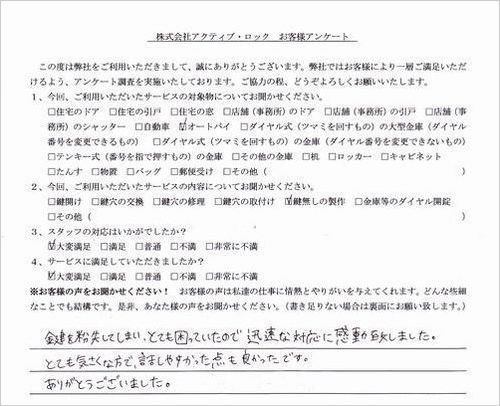 株式会社アクティブ・ロック　お客様アンケート
この度は弊社をご利用いただきまして、誠にありがとうございます。弊社ではお客様により一層ご満足いただ
けるよう、アンケート調査を実施いたしております。ご協力の程、どうぞよろしくお願いいたします。
1、今回、ご利用いただいたサービスの対象物についてお聞かせください。
□住宅のドア　□住宅の引戸　□住宅の窓　□店舗（事務所）のドア　□店舗（事務所）の引戸　□店舗（事
務所）のシャッター　□自動車　☑オートバイ　□ダイヤル式（ツマミを回すもの）の大型金庫（ダイヤル
番号を変更できるもの）　□ダイヤル式（ツマミを回すもの）の金庫（ダイヤル番号を変更できないもの）
□テンキー式（番号を指で押すもの）の金庫　□その他の金庫　□机　□ロッカー　□キャビネット
□たんす　□物置　□バッグ　□郵便受け　□その他（　　　）
2、今回、ご利用いただいたサービスの内容についてお聞かせください。
□鍵開け　□鍵穴の交換　□鍵穴の修理　□鍵穴の取付け　☑鍵無しの製作　□金庫等のダイヤル開錠
□その他（　　　）
3、スタッフの対応はいかがでしたか？
☑大変満足　□満足　□普通　□不満　□非常に不満
4、サービスに満足していただきましたか？
☑大変満足　□満足　□普通　□不満　□非常に不満
※お客様の声をお聞かせください！　お客様の声は私達の仕事に情熱とやりがいを与えてくれます。どんな些細
なことでも結構です。是非、あなた様の声をお聞かせください。（書き足りない場合は裏面にお願い致します。）
鍵を紛失してしまい、とても困っていたので迅速な対応に感動致しました。
とても気さくな方で、話しやすかった点も良かったです。
ありがとうございました。